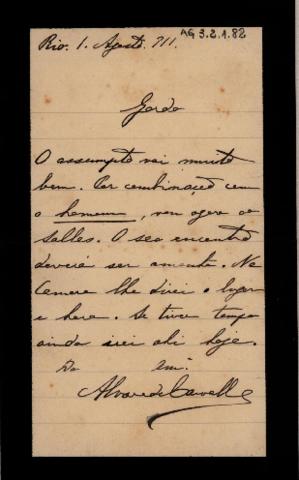 AG 3.2.1.82
Rio. 1. Agosto 911.
Gordo
O assumpto vai muito
bem. Por combinação com
o homem, vou agora ao
Salles. O seo encontro
deverá ser amanhã. Na
Camera lhe direi o lugar
e hora. Se tiver tempo
ainda irei ahi hoje.
Do am.
Alvaro de Carvalho